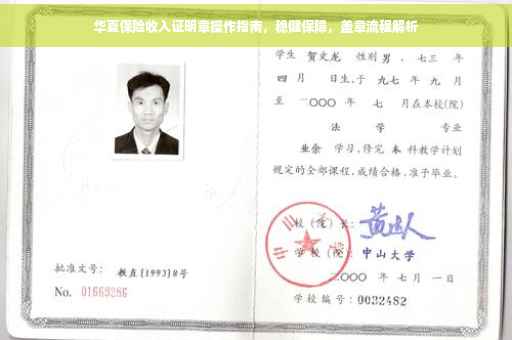 华夏保险收入证明章操作指南，稳健保障，盖章流程解析
学生 贺文龙 性别 男 、七三 年
四 月 日生，于 九七 年 九 月
至 二〇〇〇 年 七 月在本校(院)
法 学 专业
业余 学习，修完 本 科教学计划
规定的全部课程，成绩合格，准予毕业。
校 (院) 长：
学 校 (院)：中山大学
二〇〇〇 年 七 月 一 日
学校编号：0032482
批准文号： 教直[1993]8号
No. 01669286